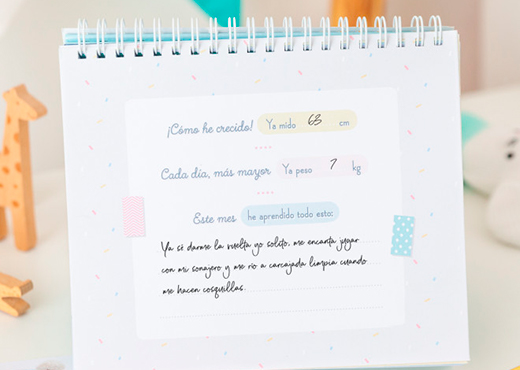 ¡Cómo he crecido! Ya mido 63 cm
Cada día, más mayor Ya peso 7 kg
Este mes he aprendido todo esto:
Ya sé darme la vuelta yo solito, me encanta jugar
con mi sonajero y me río a carcajada limpia cuando
me hacen cosquillas.